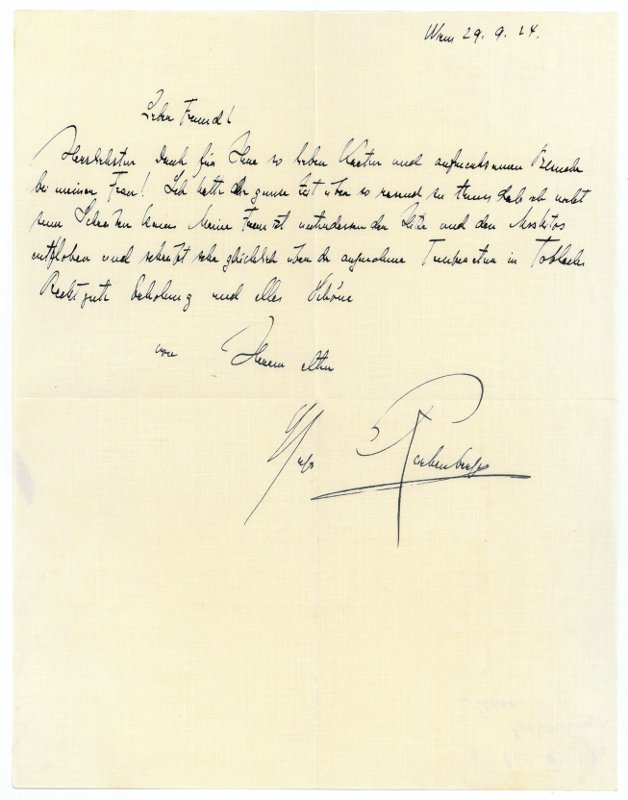 Wien 29. 9. 24.
Lieber Freund!
Herzlichsten Dank für Ihre so lieben Karten und aufmerksamen Besuche
bei meiner Frau! Ich hatte die ganze Zeit über so rasend zu tun, daß ich nicht
zum Schreiben kam. Meine Frau ist unterdessen der Hitze und den Moskitos
entflohen und schreibt sehr glücklich über die angenehme Temperatur in Toblach.
Recht gute Erholung und alles Schöne
von Ihrem alten
Hugo